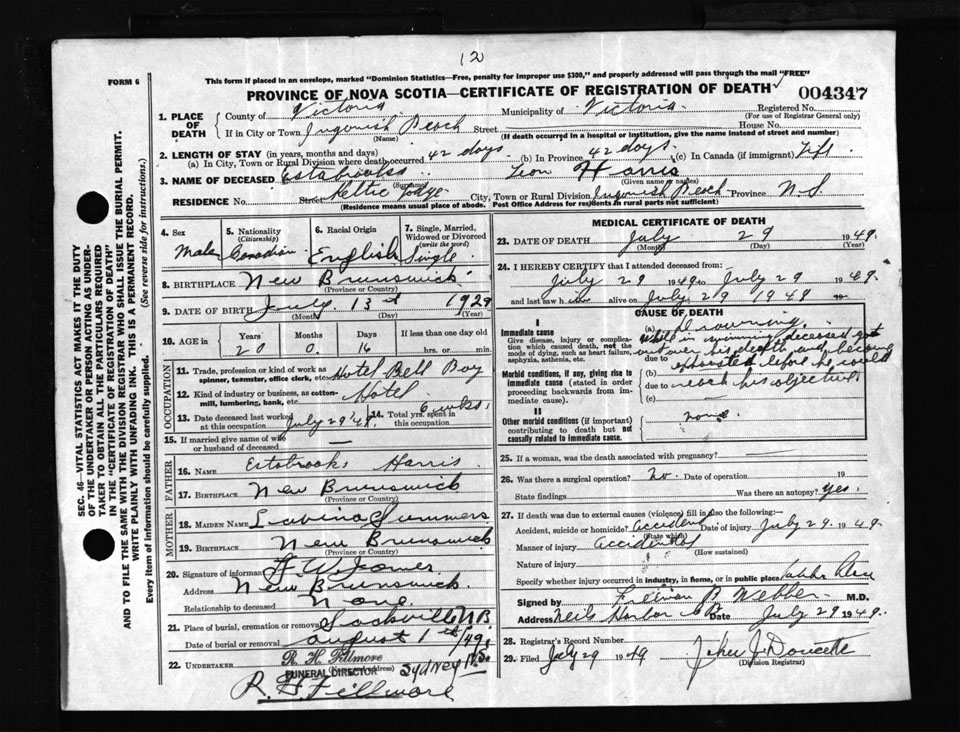 12
FORM 6
This form if placed in an envelope, marked "Dominion Statistics—Free, penalty for improper use $300," and properly addressed will pass through the mail "FREE"
PROVINCE OF NOVA SCOTIA—CERTIFICATE OF REGISTRATION OF DEATH 004347
1. PLACE OF DEATH
County of Victoria Municipality of Victoria Registered No.
(For use of Registrar General only)
If in City or Town Ingonish Beach Street House No.
(Name) (If death occurred in a hospital or institution, give the name instead of street and number)
2. LENGTH OF STAY (in years, months and days)
(a) In City, Town or Rural Division where death occurred 42 days (b) In Province 42 days (c) In Canada (if immigrant) Life
3. NAME OF DECEASED Estabrooks Leon Harris
(Surname) (Given name or names)
RESIDENCE No. Street Keltic Lodge City, Town or Rural Division Ingonish Beach Province N.S
(Residence means usual place of abode. Post Office Address for residents in rural parts not sufficient)
4. Sex
Male
5. Nationality (Citizenship)
Canadian
6. Racial Origin
English
7. Single, Married, Widowed or Divorced (write the word)
Single
8. BIRTHPLACE New Brunswick
(Province or Country)
9. DATE OF BIRTH July 13th 1929
(Month) (Day) (Year)
10. AGE in Years Months Days If less than one day old
20 0 16 hrs. or min.
OCCUPATION
11. Trade, profession or kind of work as spinner, teamster, office clerk, etc. Hotel Bell Boy
12. Kind of industry or business, as cotton-mill, lumbering, bank, etc. Hotel
13. Date deceased last worked at this occupation July 29 '49
14. Total yrs. spent in this occupation 6 wks.
15. If married give name of wife or husband of deceased —
FATHER
16. Name Estabrooks Harris
17. Birthplace New Brunswick
(Province or Country)
MOTHER
18. Maiden Name Summers
19. Birthplace New Brunswick
(Province or Country)
20. Signature of informant
Address New Brunswick
Relationship to deceased None
21. Place of burial, cremation or removal Sackville N.B.
Date of burial or removal August 1st /49
22. UNDERTAKER R. H. Fillmore
(Name and Address)
FUNERAL DIRECTOR SYDNEY N.S.
R. H. Fillmore
MEDICAL CERTIFICATE OF DEATH
23. DATE OF DEATH July 29 1949.
(Month) (Day) (Year)
24. I HEREBY CERTIFY that I attended deceased from:
July 29 1949 to July 29 1949.
and last saw h alive on July 29 1949 19
CAUSE OF DEATH
I
Immediate cause
Give disease, injury or complication which caused death, not the mode of dying, such as heart failure, asphyxia, asthenia, etc.
(a) Drowning.
While in swimming deceased got
due to out over his depth and became
Morbid conditions, if any, giving rise to immediate cause (stated in order proceeding backwards from immediate cause).
(b) exhausted before he could
due to reach his objective
(c)
II
Other morbid conditions (if important) contributing to death but not causally related to immediate cause.
none.
25. If a woman, was the death associated with pregnancy? —
26. Was there a surgical operation? No. Date of operation 19
State findings Was there an autopsy? Yes.
27. If death was due to external causes (violence) fill in also the following:—
Accident, suicide or homicide? Accident Date of injury July 29. 1949.
(State which)
Manner of injury accidental
(How sustained)
Nature of injury
Specify whether injury occurred in industry, in home, or in public place
Signed by Freeman B Webber M.D.
Address Neils Harbor C B Date July 29 1949.
28. Registrar's Record Number
29. Filed July 29 1949 John J Doucette
(Division Registrar)
SEC. 46—VITAL STATISTICS ACT MAKES IT THE DUTY
OF THE UNDERTAKER OR PERSON ACTING AS UNDER-
TAKER TO OBTAIN ALL THE PARTICULARS REQUIRED
IN THE "CERTIFICATE OF REGISTRATION OF DEATH"
AND TO FILE THE SAME WITH THE DIVISION REGISTRAR WHO SHALL ISSUE THE BURIAL PERMIT.
WRITE PLAINLY WITH UNFADING INK. THIS IS A PERMANENT RECORD.
Every item of information should be carefully supplied. (See reverse side for instructions.)